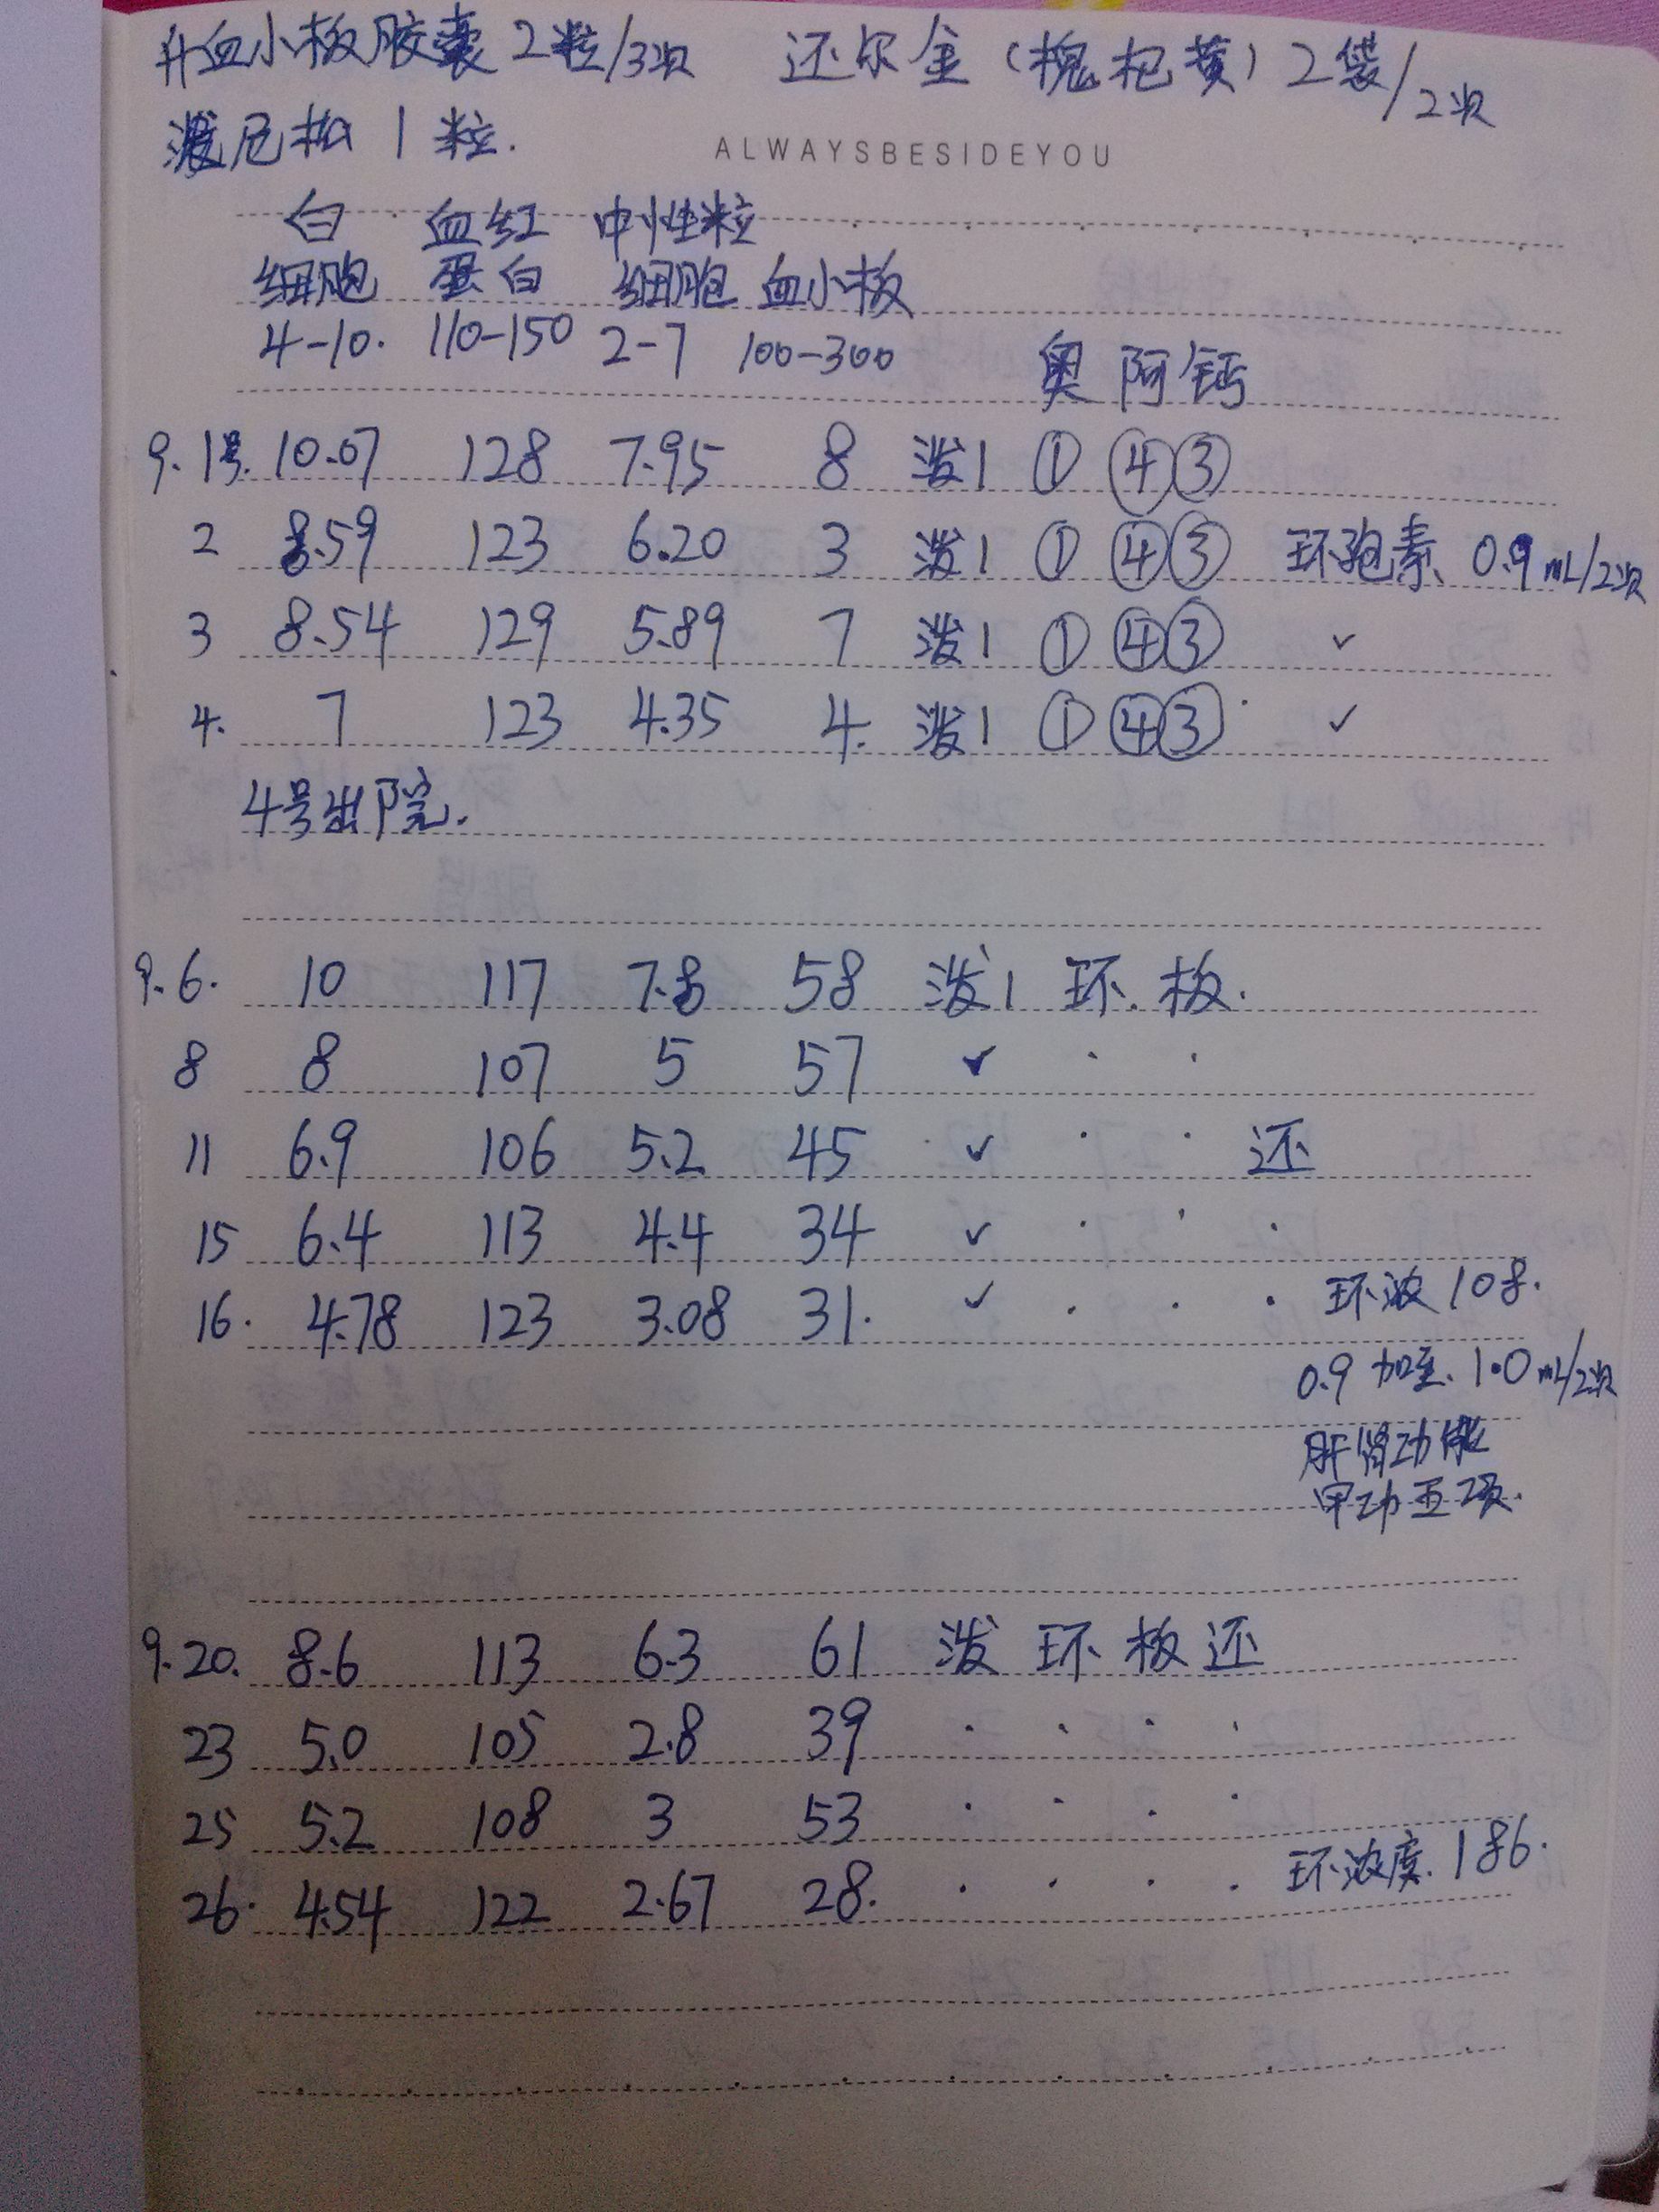 升血小板胶囊 2粒/3次 还尔金（槐杞黄）2袋/2次
泼尼松 1 粒.
ALWAYSBESIDEYOU
白 血红 中性粒
细胞 蛋白 细胞 血小板
4-10. 110-150 2-7 100-300 奥 阿 钙
9.1号. 10.07 128 7.95 8 泼1 ① ④ ③
2 8.59 123 6.20 3 泼1 ① ④ ③ 环孢素 0.9mL/2次
3 8.54 129 5.89 7 泼1 ① ④ ③ ✓
4. 7 123 4.35 4. 泼1 ① ④ ③ ✓
4号出院.
9.6. 10 117 7.8 58 泼1 环. 板.
8 8 107 5 57 ✓ · ·
11 6.9 106 5.2 45 ✓ · · 还
15 6.4 113 4.4 34 ✓ · · ·
16. 4.78 123 3.08 31. ✓ · · · 环浓 108.
0.9 加至 1.0mL/2次
肝肾功能
甲功五项.
9.20. 8.6 113 6.3 61 泼 环 板 还
23 5.0 105 2.8 39 · · · ·
25 5.2 108 3 53 · · · ·
26. 4.54 122 2.67 28. · · · · 环浓度. 186.